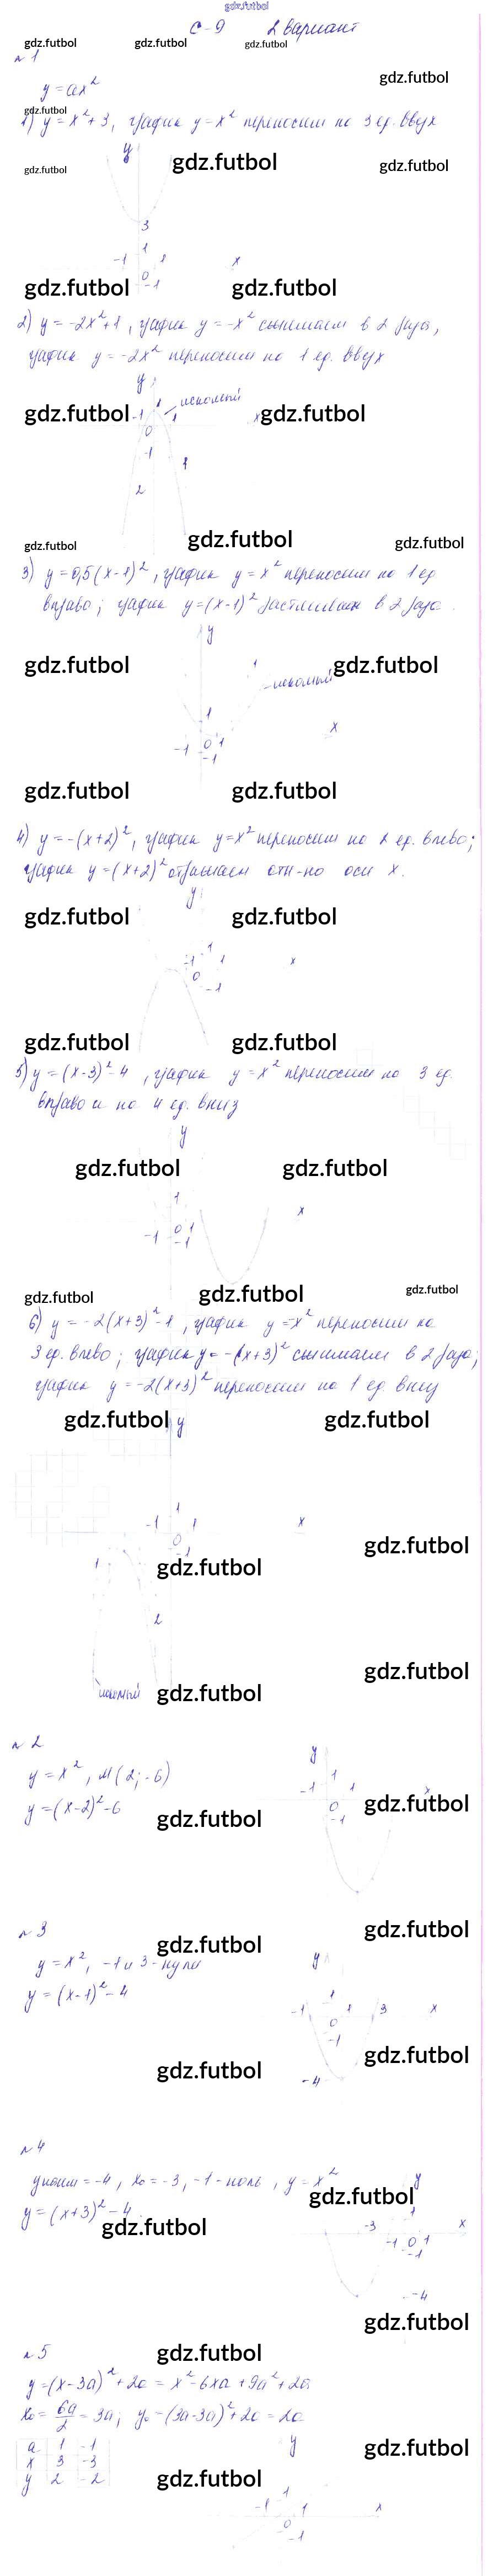 gdz.futbol
С-9 2 вариант
gdz.futbol gdz.futbol gdz.futbol
№1
gdz.futbol
y = ax²
gdz.futbol
1) y = x² + 3, график y = x² переносим на 3 ед. вверх
y
gdz.futbol gdz.futbol gdz.futbol
3
1
-1 1 x
0
-1
gdz.futbol gdz.futbol
2) y = -2x² + 1, график y = -x² сжимаем в 2 раза,
график y = -2x² переносим на 1 ед. вверх
y
искомый
gdz.futbol -1 1 1 x gdz.futbol
0
-1
1
2
gdz.futbol gdz.futbol gdz.futbol
3) y = 0,5(x-1)², график y = x² переносим на 1 ед
вправо; график y = (x-1)² растягиваем в 2 раза.
y
gdz.futbol 1 gdz.futbol
искомый
1
x
-1 0 1
-1
gdz.futbol gdz.futbol
4) y = -(x+2)², график y = x² переносим на 2 ед. влево;
график y = (x+2)² отражаем отн-но оси x.
y
gdz.futbol gdz.futbol
1
-1 1 x
0
-1
gdz.futbol gdz.futbol
5) y = (x-3)² - 4, график y = x² переносим на 3 ед.
вправо и на 4 ед. вниз
y
gdz.futbol gdz.futbol
1
x
-1 0 1
-1
gdz.futbol gdz.futbol gdz.futbol
6) y = -2(x+3)² - 1, график y = -x² переносим на
3 ед. влево; график y = -(x+3)² сжимаем в 2 раза;
график y = -2(x+3)² переносим на 1 ед. вниз
gdz.futbol y gdz.futbol
1
-1 1 x
0
-1
gdz.futbol
1 gdz.futbol
2
gdz.futbol
искомый gdz.futbol
№2
y = x², М(2; -6)
y = (x-2)² - 6
y
1
-1 1 x
0
-1
gdz.futbol gdz.futbol
gdz.futbol
№3
gdz.futbol
y = x², -1 и 3 - нули
y = (x-1)² - 4
y
1
-1 1 3 x
0
-1
gdz.futbol
-4
gdz.futbol
№4
yнаим = -4, x₀ = -3, -1 - ноль, y = x²
y = (x+3)² - 4
gdz.futbol
gdz.futbol
y
1
-3 x
-1 0 1
-1
-4
gdz.futbol
№5 gdz.futbol
y = (x-3a)² + 2a = x² - 6xa + 9a² + 2a
x₀ = 6a/2 = 3a; y₀ = (3a-3a)² + 2a = 2a
a 1 -1
x 3 -3
y 2 -2
y
gdz.futbol
gdz.futbol
1
-1 1 x
0
-1